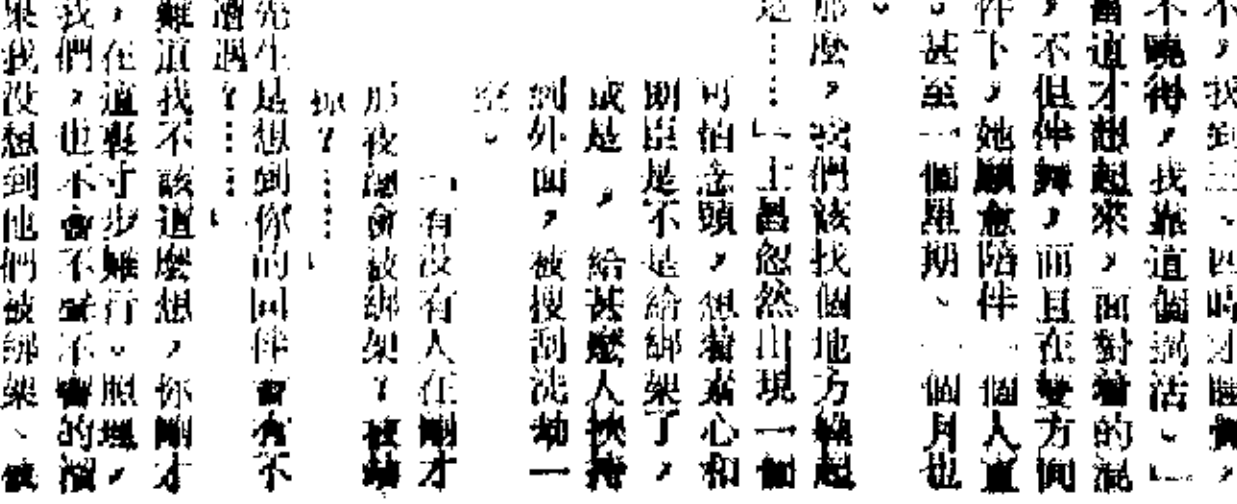 不，我到三、四時才睡覺，
不曉得，我靠這個過活。」
當道才想起來，面對着的混
，不但伴舞，而且在雙方面
件下，她願意陪伴一個人直
。甚至一個星期、一個月也
那麼，我們該找個地方躲起
是……」上昌忽然出現一個
可怕念頭，想着素心和
則臣是不是給綁架了，
或是，給甚麼人挾持
到外面，被搜刮洗劫一
空。
「有沒有人在剛才
那夜總會被綁架？被劫
你？……」
先生是想到你的同伴會有不
遭遇？……」
難道我不該這麼想，你剛才
，在這裡寸步難行。照理，
我們，也不會不
果我沒想到他們被綁架、被